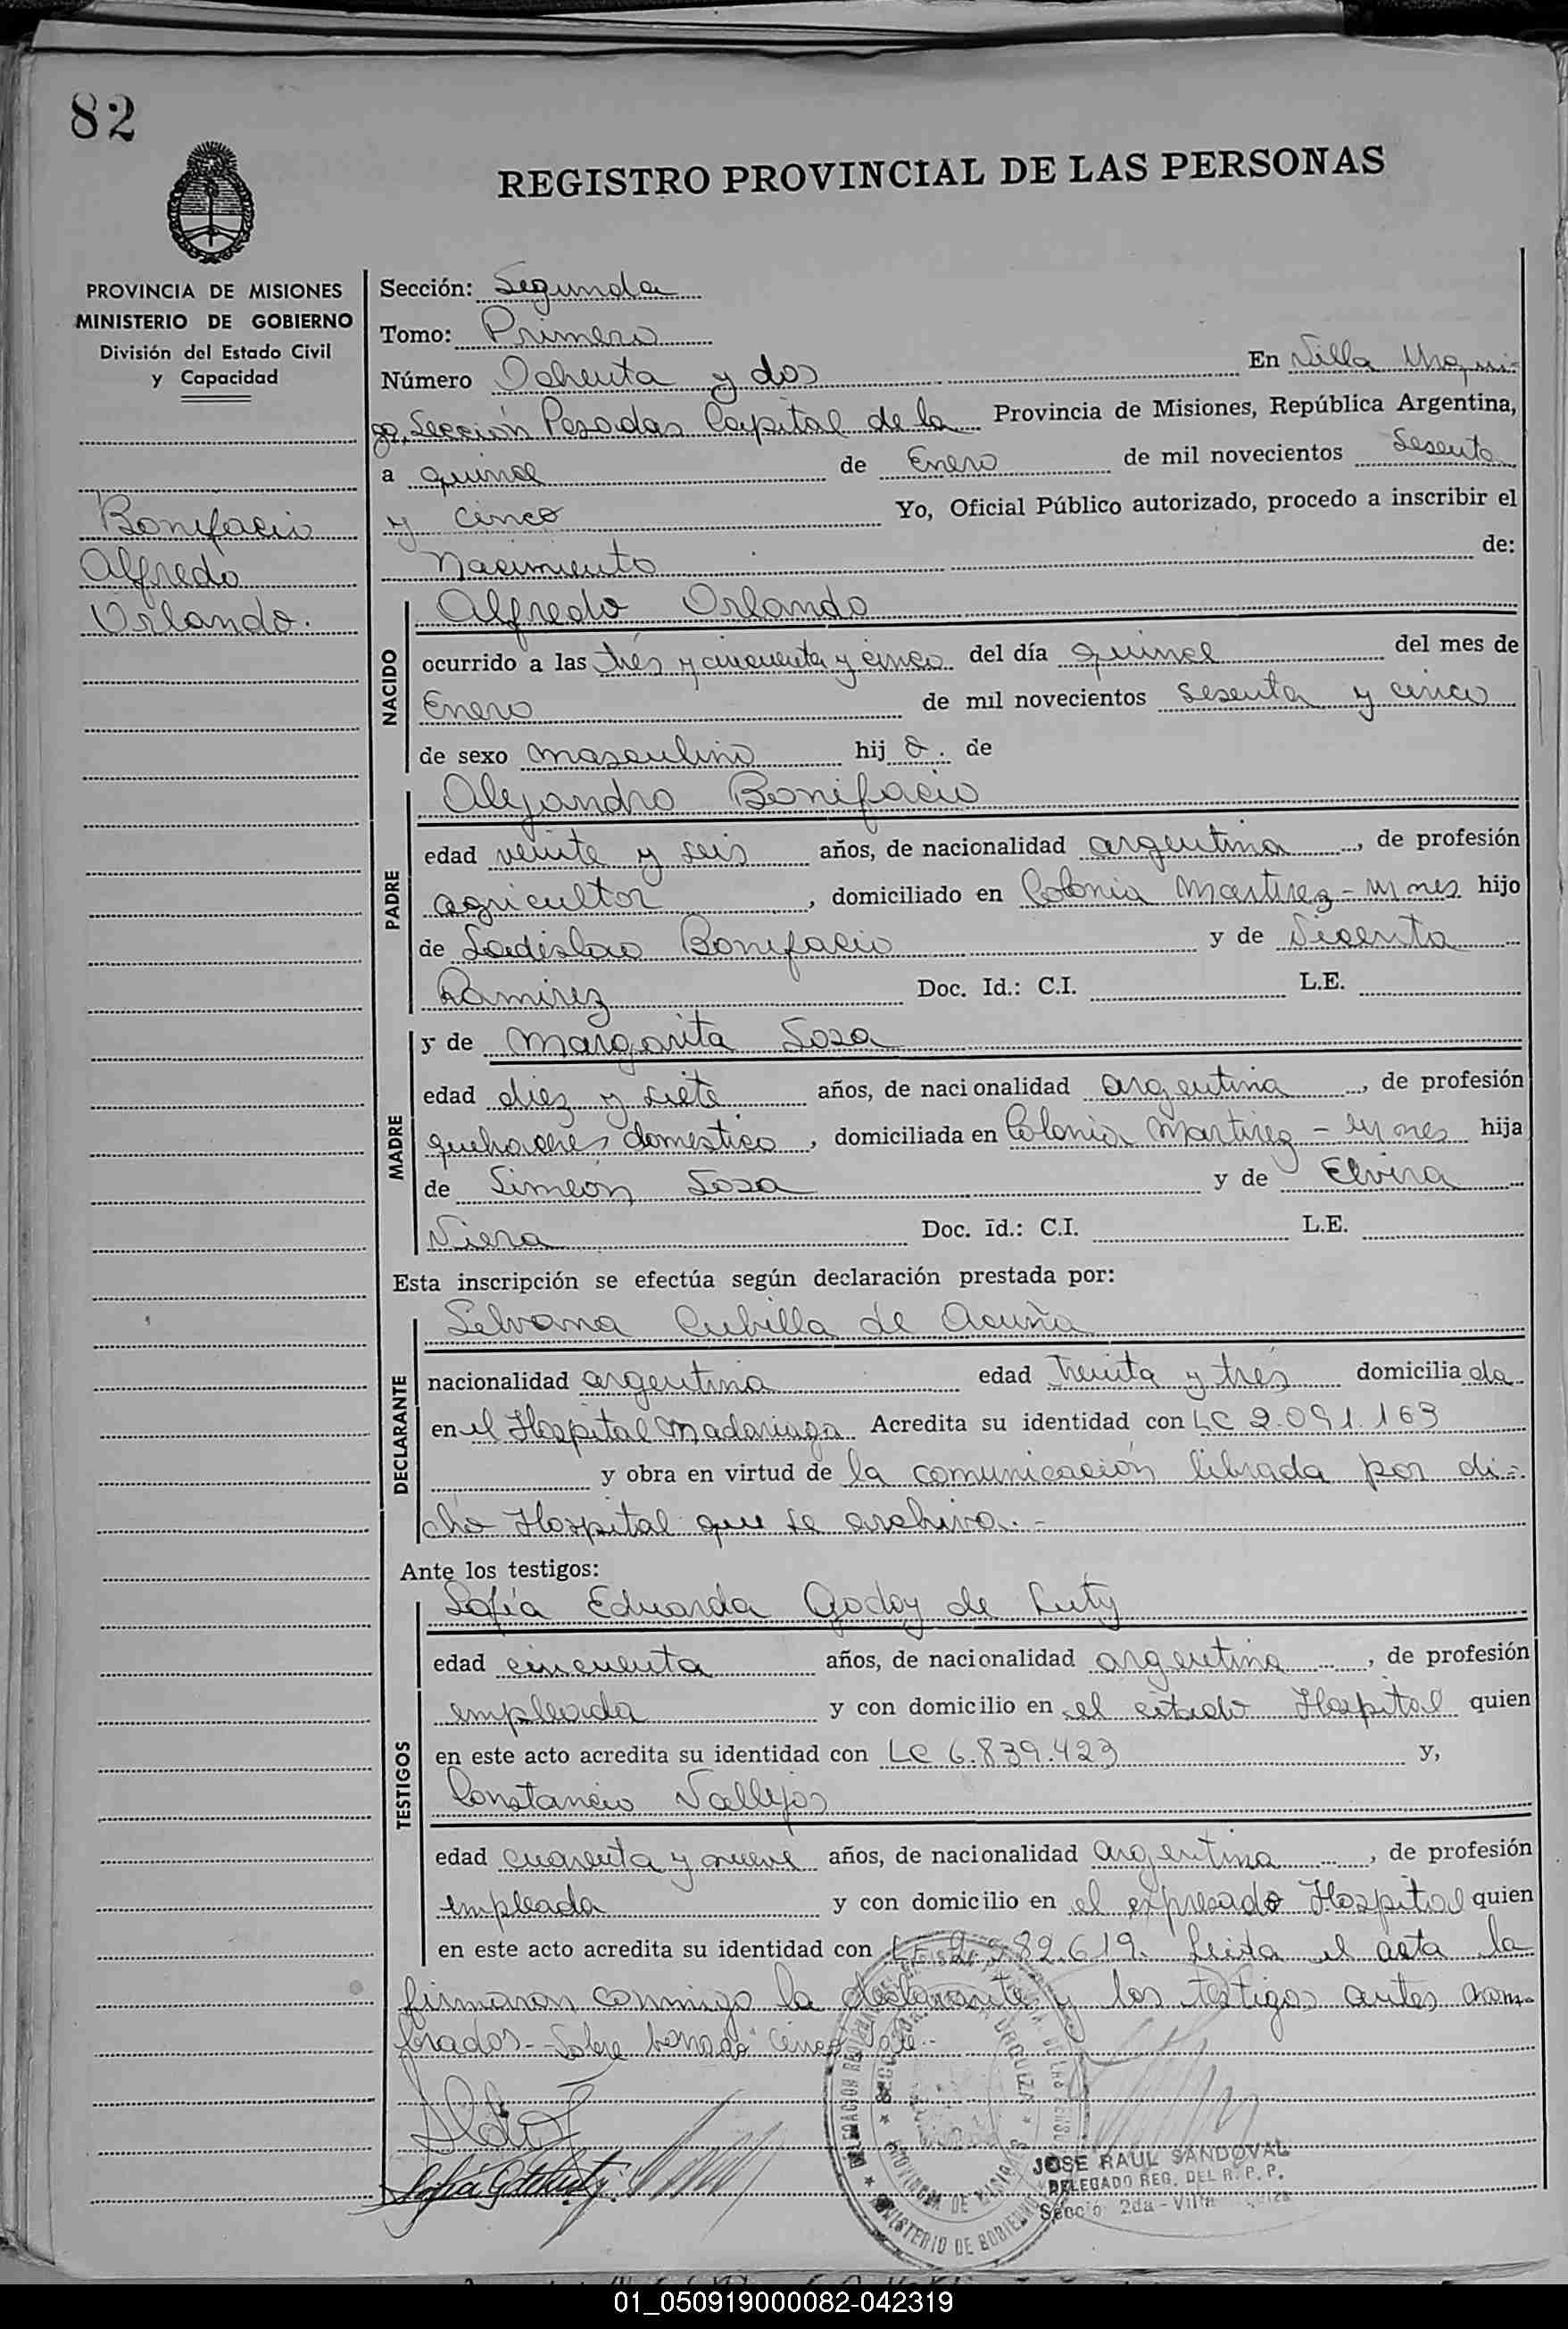 82
REGISTRO PROVINCIAL DE LAS PERSONAS
PROVINCIA DE MISIONES
MINISTERIO DE GOBIERNO
División del Estado Civil
y Capacidad
Bonifacio
Alfredo
Orlando.
Sección: Segunda
Tomo: Primero
Número Ochenta y dos En Villa Urqui-
za, Sección Posadas Capital de la Provincia de Misiones, República Argentina,
a quince de Enero de mil novecientos sesenta
y cinco Yo, Oficial Público autorizado, procedo a inscribir el
Nacimiento de:
NACIDO
Alfredo Orlando
ocurrido a las tres y cincuenta y cinco del día quince del mes de
Enero de mil novecientos sesenta y cinco
de sexo masculino hij o. de
PADRE
Alejandro Bonifacio
edad veinte y seis años, de nacionalidad argentina, de profesión
agricultor, domiciliado en Colonia Martirez - Mnes hijo
de Ladislao Bonifacio y de Vicenta
Ramirez Doc. Id.: C.I. L.E.
MADRE
y de Margarita Sosa
edad diez y siete años, de nacionalidad argentina, de profesión
quehaceres domestico, domiciliada en Colonia Martirez - Mnes hija
de Simeón Sosa y de Elvira
Viera Doc. Id.: C.I. L.E.
Esta inscripción se efectúa según declaración prestada por:
DECLARANTE
Selvana Cubilla de Acuña
nacionalidad argentina edad treinta y tres domiciliada
en el Hospital Madariaga Acredita su identidad con LC 2.091.163
y obra en virtud de la comunicación librada por di-
cho Hospital que se archiva.-
Ante los testigos:
TESTIGOS
Sofía Eduarda Godoy de Luty
edad cincuenta años, de nacionalidad argentina, de profesión
empleada y con domicilio en el citado Hospital quien
en este acto acredita su identidad con LC 6.839.423 y,
Constancio Vallejos
edad cuarenta y nueve años, de nacionalidad argentina, de profesión
empleada y con domicilio en el expresado Hospital quien
en este acto acredita su identidad con 82.619. Leida el acta la
firmaron conmigo la declarante y los testigos antes nom-
brados.- Sobre borrado "cinco" Vale.-
JOSE RAUL SANDOVAL
DELEGADO REG. DEL R. P. P.
Sección 2da - Villa Urquiza
PROVINCIA DE MISIONES
MINISTERIO DE GOBIERNO
01_050919000082-042319